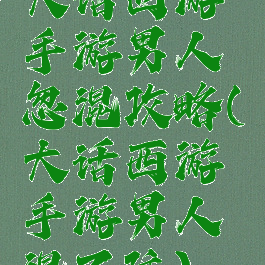 大话西游
手游男人
忽混攻略(
大话西游
手游男人
混不验)